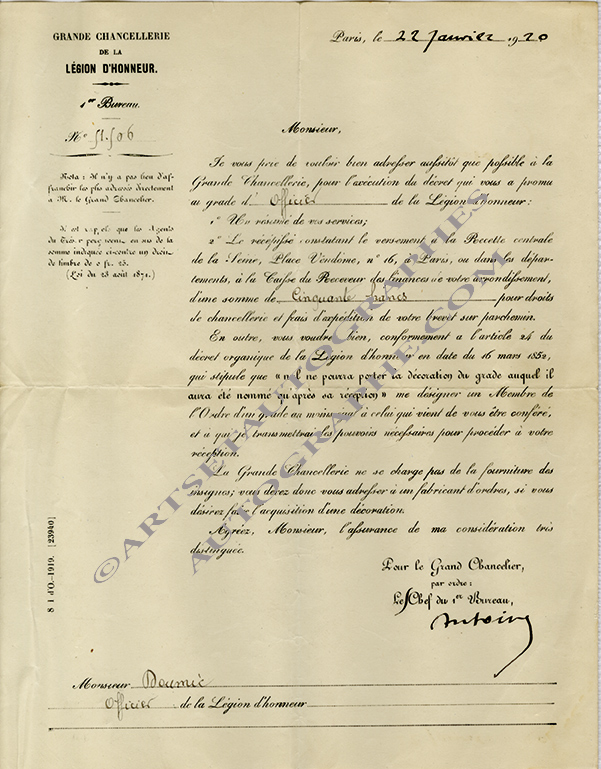 GRANDE CHANCELLERIE
DE LA
LÉGION D'HONNEUR.
1er Bureau.
No 51.506
Nota : Il n'y a pas lieu d'af-
franchir les plis adressés directement
à M. le Grand Chancelier.
Il est rappelé que les Agents
du Trésor perçoivent en sus de la
somme indiquée ci-contre un droit
de timbre de 0 fr. 25.
(Loi du 23 août 1871.)
Paris, le 22 Janvier 1920
Monsieur,
Je vous prie de vouloir bien adresser aussitôt que possible à la
Grande Chancellerie, pour l'exécution du décret qui vous a promu
au grade d' Officier de la Légion d'honneur :
1° Un résumé de vos services;
2° Le récépissé constatant le versement, à la Recette centrale
de la Seine, Place Vendôme, n° 16, à Paris, ou dans les dépar-
tements, à la Caisse du Receveur des finances de votre arrondissement,
d'une somme de Cinquante francs pour droits
de chancellerie et frais d'expédition de votre brevet sur parchemin.
En outre, vous voudrez bien, conformément à l'article 24 du
décret organique de la Légion d'honneur en date du 16 mars 1852,
qui stipule que « nul ne pourra porter la décoration du grade auquel il
aura été nommé qu'après sa réception » me désigner un Membre de
l'Ordre d'un grade au moins égal à celui qui vient de vous être conféré,
et à qui je transmettrai les pouvoirs nécessaires pour procéder à votre
réception.
La Grande Chancellerie ne se charge pas de la fourniture des
insignes; vous devez donc vous adresser à un fabricant d'ordres, si vous
désirez faire l'acquisition d'une décoration.
Agréez, Monsieur, l'assurance de ma considération très
distinguée.
Pour le Grand Chancelier,
par ordre :
Le Chef du 1er Bureau,
Antoine
8 1 d'O.-1919. [23940]
Monsieur Doumic
Officier de la Légion d'honneur
©ARTSETAUTOGRAPHES
AUTOGRAPHE.COM